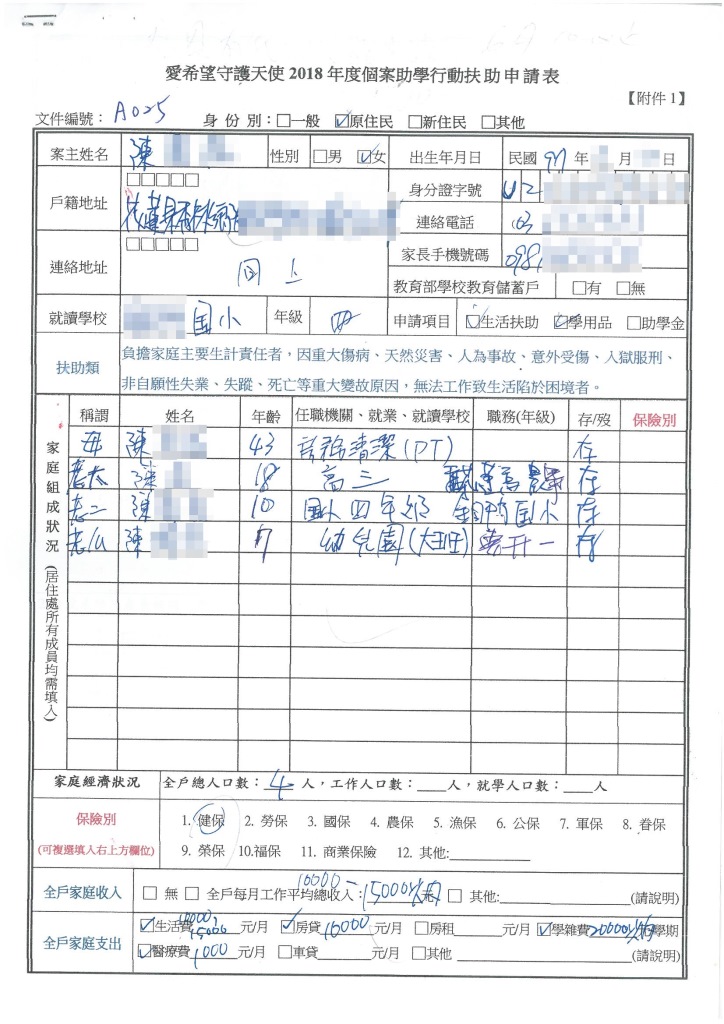 愛希望守護天使 2018 年度個案助學行動扶助申請表
【附件 1】
文件編號： A025 身 份 別：□一般 ☑原住民 □新住民 □其他
案主姓名 陳 性別 □男 ☑女 出生年月日 民國 97 年 月 日
戶籍地址 □□□□□ 身分證字號 U2
連絡電話 03
連絡地址 □□□□□ 同上 家長手機號碼 098
教育部學校教育儲蓄戶 □有 □無
就讀學校 国小 年級 四 申請項目 ☑生活扶助 ☑學用品 □助學金
扶助類 負擔家庭主要生計責任者，因重大傷病、天然災害、人為事故、意外受傷、入獄服刑、
非自願性失業、失蹤、死亡等重大變故原因，無法工作致生活陷於困境者。
家庭組成狀況(居住處所有成員均需填入)
稱謂 姓名 年齡 任職機關、就業、就讀學校 職務(年級) 存/歿 保險別
母 陳 43 清潔(PT) 存
老大 陳 18 高三 存
老二 陳 10 国小四年級 国小 存
老么 陳 7 幼兒園(大班) 要升一 存
家庭經濟狀況 全戶總人口數：4 人，工作人口數：____人，就學人口數：____人
保險別 1. 健保 2. 勞保 3. 國保 4. 農保 5. 漁保 6. 公保 7. 軍保 8. 眷保
(可複選填入右上方欄位) 9. 榮保 10.福保 11. 商業保險 12. 其他:__________
全戶家庭收入 □ 無 □ 全戶每月工作平均總收入：10000－15000元 □ 其他:__________(請說明)
全戶家庭支出 ☑生活費 10000, 15000 元/月 ☑房貸 10000 元/月 □房租______元/月 ☑學雜費 20000 元/學期
☑醫療費 1000 元/月 □車貸______元/月 □其他 __________(請說明)